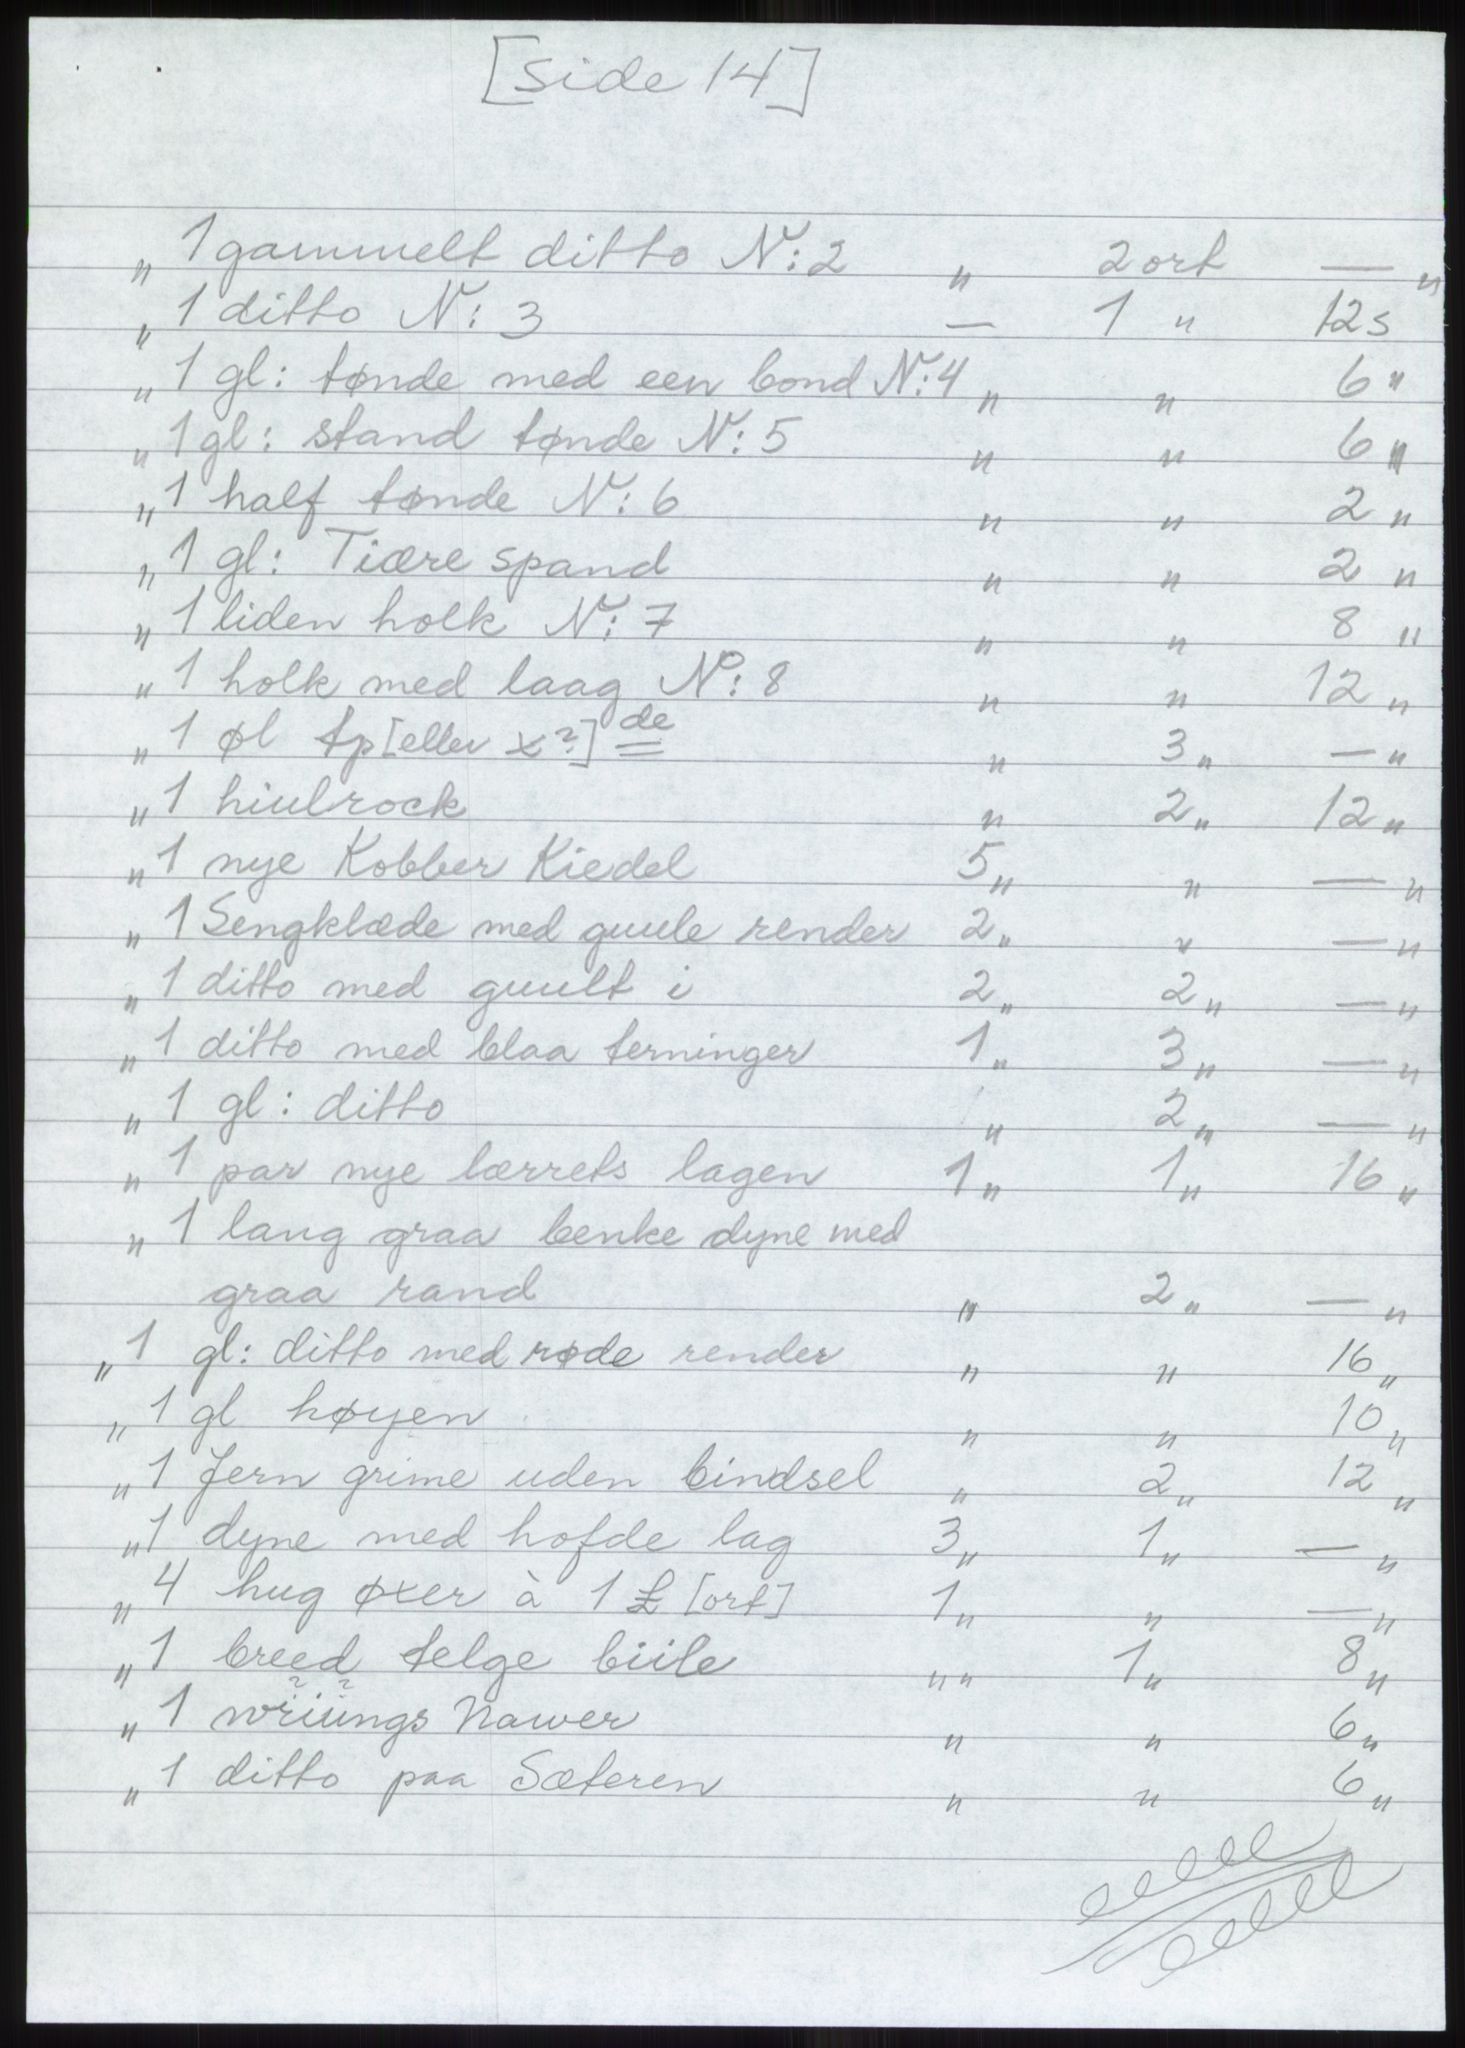 [side 14]
„ 1 gammelt ditto N: 2 „ 2 ort — „
„ 1 ditto N: 3 — 1 „ 12 s
„ 1 gl: tønde med een bond N: 4 „ „ 6 „
„ 1 gl: stand tønde N: 5 „ „ 6 „
„ 1 half tønde N: 6 „ „ 2 „
„ 1 gl: Tiære spand „ „ 2 „
„ 1 liden holk N: 7 „ „ 8 „
„ 1 holk med laag No: 8 „ „ 12 „
„ 1 øl tp [eller x?] de „ 3 „ — „
„ 1 hiulrock „ 2 „ 12 „
„ 1 nye Kobber Kiedel 5 „ „ — „
„ 1 Sengklæde med guule render 2 „ „ — „
„ 1 ditto med guult i 2 „ 2 „ — „
„ 1 ditto med blaa terninger 1 „ 3 „ — „
„ 1 gl: ditto „ 2 „ — „
„ 1 par nye lærrets lagen 1 „ 1 „ 16 „
„ 1 lang graa benke dyne med
graa rand „ 2 „ — „
„ 1 gl: ditto med røde render „ „ 16 „
„ 1 gl høyen „ „ 10 „
„ 1 Jern grime uden bindsel „ 2 „ 12 „
„ 1 dyne med hofde lag 3 „ 1 „ — „
„ 4 hug øxer à 1 £ [ort] 1 „ „ — „
„ 1 breed telge biile „ „ 1 „ 8 „
„ 1 wriüngs Nawer „ „ 6 „
„ 1 ditto paa Sæteren „ „ 6 „